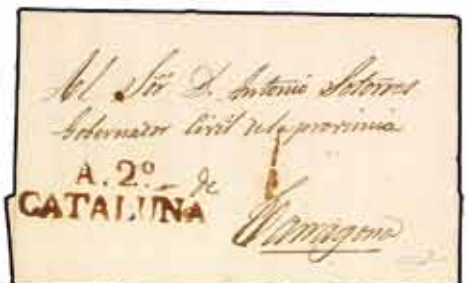 Al Sõr D. Antonio Sotorres
Gobernador Civil de la provincia
A. 2º
de
CATALUÑA
Tarragona